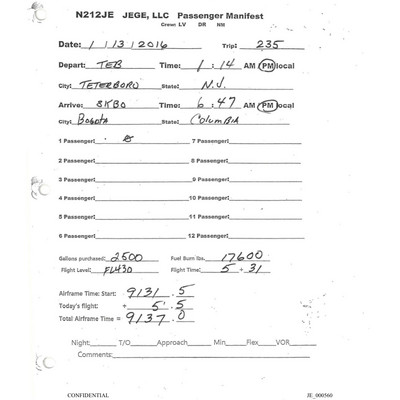 N212JE JEGE, LLC Passenger Manifest
Crew: LV DR NM
Date: 1/13/2016 Trip: 235
Depart: TEB Time: 1:14 AM PM local
City: TETERBORO State: N.J.
Arrive: SKBO Time: 6:47 AM PM local
City: BOGOTA State: COLUMBIA
1 Passenger: 7 Passenger:
2 Passenger: 8 Passenger:
3 Passenger: 9 Passenger:
4 Passenger: 10 Passenger:
5 Passenger: 11 Passenger:
6 Passenger: 12 Passenger:
Gallons purchased: 2500 Fuel Burn lbs. 17600
Flight Level: FL430 Flight Time: 5 + 31
Airframe Time: Start: 9131.5
Today's flight: + 5.5
Total Airframe Time = 9137.0
Night: T/O Approach Min Flex VOR
Comments:
CONFIDENTIAL JE_000560